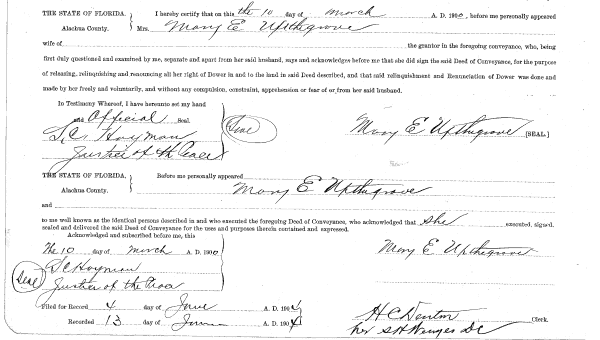 THE STATE OF FLORIDA, } I hereby certify that on this the 10 day of march A. D. 1900, before me personally appeared
Alachua County. } Mrs. Mary E Upthegrove
wife of the grantor in the foregoing conveyance, who, being
first duly questioned and examined by me, separate and apart from her said husband, says and acknowledges before me that she did sign the said Deed of Conveyance, for the purpose
of releasing, relinquishing and renouncing all her right of Dower in and to the land in said Deed described, and that said relinquishment and Renunciation of Dower was done and
made by her freely and voluntarily, and without any compulsion, constraint, apprehension or fear of or from her said husband.
In Testimony Whereof, I have hereunto set my hand
and Official Seal.
S. C. Hayman (Seal) Mary E Upthegrove [SEAL]
Justice of the Peace
THE STATE OF FLORIDA, } Before me personally appeared
Alachua County. } Mary E Upthegrove
and
to me well known as the identical persons described in and who executed the foregoing Deed of Conveyance, who acknowledged that she executed, signed,
sealed and delivered the said Deed of Conveyance for the uses and purposes therein contained and expressed.
Acknowledged and subscribed before me, this
The 10 day of march A. D. 1900 Mary E Upthegrove
S C Hayman
(Seal) Justice of the Peace
Filed for Record 4 day of June A. D. 1904 H C Denton Clerk.
Recorded 13 day of June A. D. 1904 per S H Wienges DC